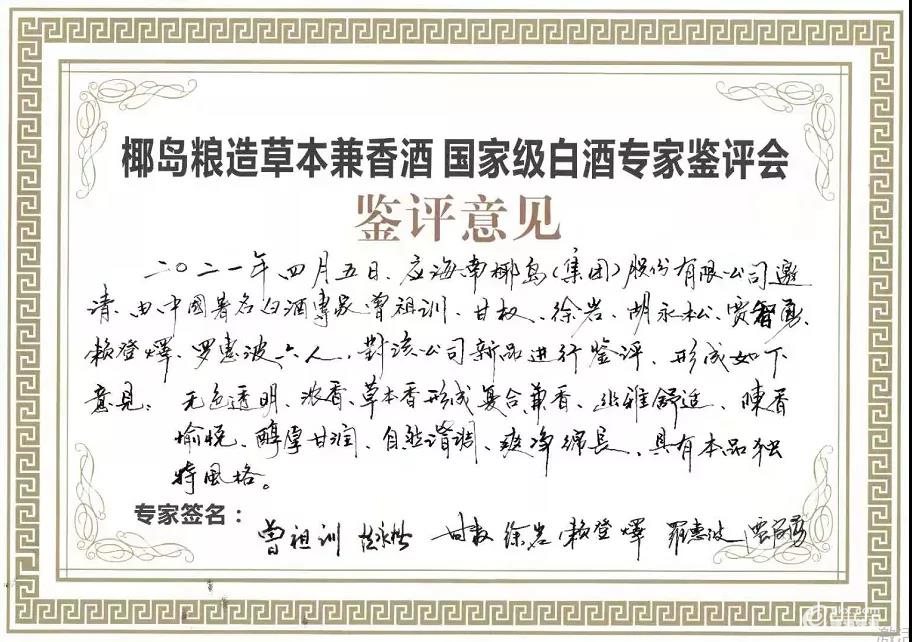 椰岛粮造草本兼香酒 国家级白酒专家鉴评会
鉴评意见
二〇二一年四月五日、应海南椰岛(集团)股份有限公司邀
请、由中國著名白酒專家曾祖训、甘权、徐岩、胡永松、贾智勇、
赖登燡、罗惠波六人,對该公司新品进行鉴评、形成如下
意見: 无色透明、浓香、草本香形成复合兼香、幽雅舒适、陳香
愉悦、醇厚甘润、自然谐调、爽净绵長、具有本品独
特風格。
专家签名:
曾祖训 胡永松 甘权 徐岩 赖登燡 羅惠波 贾智勇